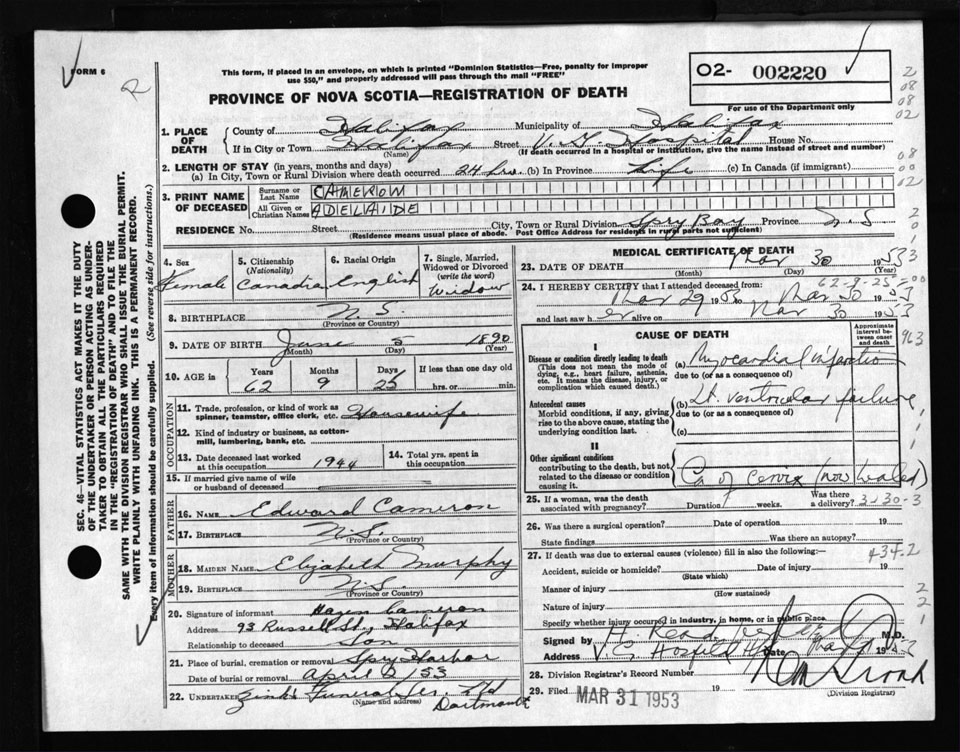 FORM 6
This form, if placed in an envelope, on which is printed "Dominion Statistics—Free, penalty for improper
use $50," and properly addressed will pass through the mail "FREE"
PROVINCE OF NOVA SCOTIA—REGISTRATION OF DEATH
O2- 002220
For use of the Department only
SEC. 46—VITAL STATISTICS ACT MAKES IT THE DUTY
OF THE UNDERTAKER OR PERSON ACTING AS UNDER-
TAKER TO OBTAIN ALL THE PARTICULARS REQUIRED
IN THE "REGISTRATION OF DEATH" AND TO FILE THE
SAME WITH THE DIVISION REGISTRAR WHO SHALL ISSUE THE BURIAL PERMIT.
WRITE PLAINLY WITH UNFADING INK. THIS IS A PERMANENT RECORD.
Every item of information should be carefully supplied. (See reverse side for instructions.)
1. PLACE OF DEATH County of Halifax Municipality of Halifax
If in City or Town Halifax Street V. G. Hospital House No.
(Name) (If death occurred in a hospital or institution, give the name instead of street and number)
2. LENGTH OF STAY (in years, months and days)
(a) In City, Town or Rural Division where death occurred 24 hrs. (b) In Province Life (c) In Canada (if immigrant)
3. PRINT NAME OF DECEASED Surname or Last Name CAMERON
All Given or Christian Names ADELAIDE
RESIDENCE No. Street City, Town or Rural Division Spry Bay Province N.S
(Residence means usual place of abode. Post Office Address for residents in rural parts not sufficient)
4. Sex Female
5. Citizenship (Nationality) Canadian
6. Racial Origin English
7. Single, Married, Widowed or Divorced (write the word) Widow
8. BIRTHPLACE N.S.
(Province or Country)
9. DATE OF BIRTH June 5 1890
(Month) (Day) (Year)
10. AGE in Years 62 Months 9 Days 25 If less than one day hrs. or min.
OCCUPATION
11. Trade, profession, or kind of work as spinner, teamster, office clerk, etc. Housewife
12. Kind of industry or business, as cotton-mill, lumbering, bank, etc.
13. Date deceased last worked at this occupation 1944
14. Total yrs. spent in this occupation
15. If married give name of wife or husband of deceased
FATHER
16. NAME Edward Cameron
17. BIRTHPLACE N.S.
(Province or Country)
MOTHER
18. MAIDEN NAME Elizabeth Murphy
19. BIRTHPLACE N.S.
(Province or Country)
20. Signature of informant Cameron
Address 93 Russell St., Halifax
Relationship to deceased Son
21. Place of burial, cremation or removal Spry Harbor
Date of burial or removal April 2/53
22. UNDERTAKER Zink's Funeral Ser. Ltd
(Name and address) Dartmouth
MEDICAL CERTIFICATE OF DEATH
23. DATE OF DEATH Mar 30 1953
(Month) (Day) (Year)
24. I HEREBY CERTIFY that I attended deceased from: 62-9-25
Mar 29 1953 to Mar 30 1953
and last saw her alive on Mar 30 1953
CAUSE OF DEATH
Approximate interval between onset and death
963
I
Disease or condition directly leading to death
(This does not mean the mode of dying, e.g., heart failure, asthenia, etc. It means the disease, injury, or complication which caused death.)
(a) Myocardial infarction
due to (or as a consequence of)
Antecedent causes
Morbid conditions, if any, giving rise to the above cause, stating the underlying condition last.
(b) Lt. ventricular failure
due to (or as a consequence of)
(c)
II
Other significant conditions
contributing to the death, but not related to the disease or condition causing it.
Ca of cervix (now healed)
25. If a woman, was the death associated with pregnancy? Duration weeks. Was there a delivery? 3-30-3
26. Was there a surgical operation? Date of operation 19
State findings Was there an autopsy?
27. If death was due to external causes (violence) fill in also the following: 434.2
Accident, suicide or homicide? Date of injury 19
(State which)
Manner of injury
(How sustained)
Nature of injury
Specify whether injury occurred in industry, in home, or in public place
Signed by H. Read M.D.
Address V. G. Hospital Hfx Date 19
28. Division Registrar's Record Number
29. Filed MAR 31 1953 19
(Division Registrar)